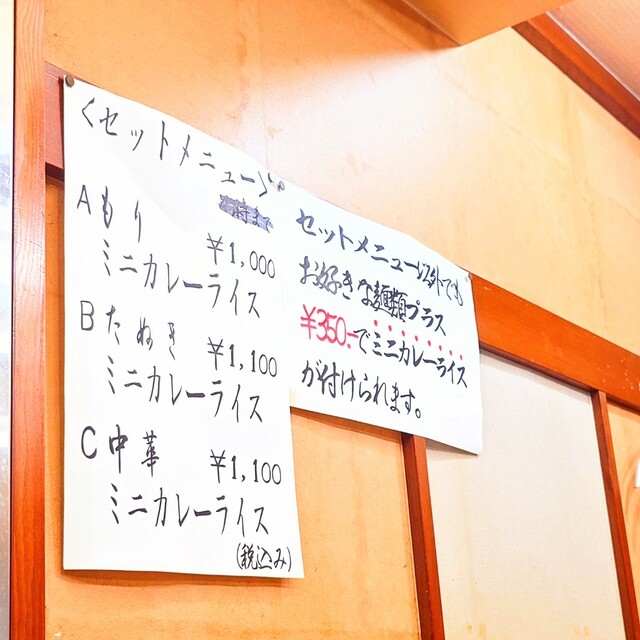 <セットメニュー>
Aもり
¥1,000
ミニカレーライス
Bたぬき
¥1,100
ミニカレーライス
C中華
¥1,100
ミニカレーライス
(税込み)
セットメニュー以外でも
お好きな麺類プラス
¥350-でミニカレーライス
が付けられます。